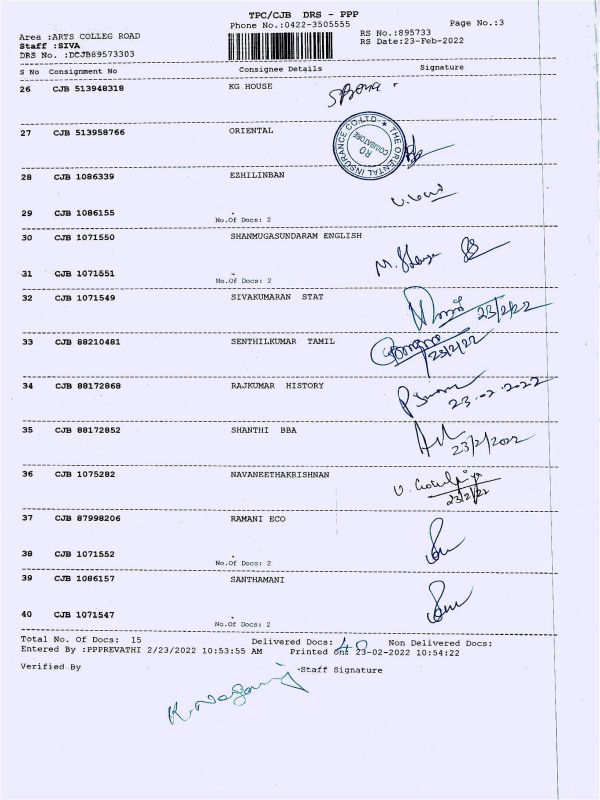 TPC/CJB DRS - PPP
Phone No.:0422-3505555 Page No.:3
Area :ARTS COLLEG ROAD RS No.:895733
Staff :SIVA RS Date:23-Feb-2022
DRS No. :DCJB89573303
S No Consignment No Consignee Details Signature
26 CJB 513948318 KG HOUSE
27 CJB 513958766 ORIENTAL
THE ORIENTAL INSURANCE CO.LTD. ★
RO
COIMBATORE
28 CJB 1086339 EZHILINBAN
29 CJB 1086155 .
No.Of Docs: 2
30 CJB 1071550 SHANMUGASUNDARAM ENGLISH
31 CJB 1071551 .
No.Of Docs: 2
32 CJB 1071549 SIVAKUMARAN STAT 23/2/22
33 CJB 88210481 SENTHILKUMAR TAMIL 23/2/22
34 CJB 88172868 RAJKUMAR HISTORY 23-02-2022
35 CJB 88172852 SHANTHI BBA 23/2/2022
36 CJB 1075282 NAVANEETHAKRISHNAN 23/2/22
37 CJB 87998206 RAMANI ECO
38 CJB 1071552 .
No.Of Docs: 2
39 CJB 1086157 SANTHAMANI
40 CJB 1071547 .
No.Of Docs: 2
Total No. Of Docs: 15 Delivered Docs: 40 Non Delivered Docs:
Entered By :PPPREVATHI 2/23/2022 10:53:55 AM Printed on: 23-02-2022 10:54:22
Verified By Staff Signature